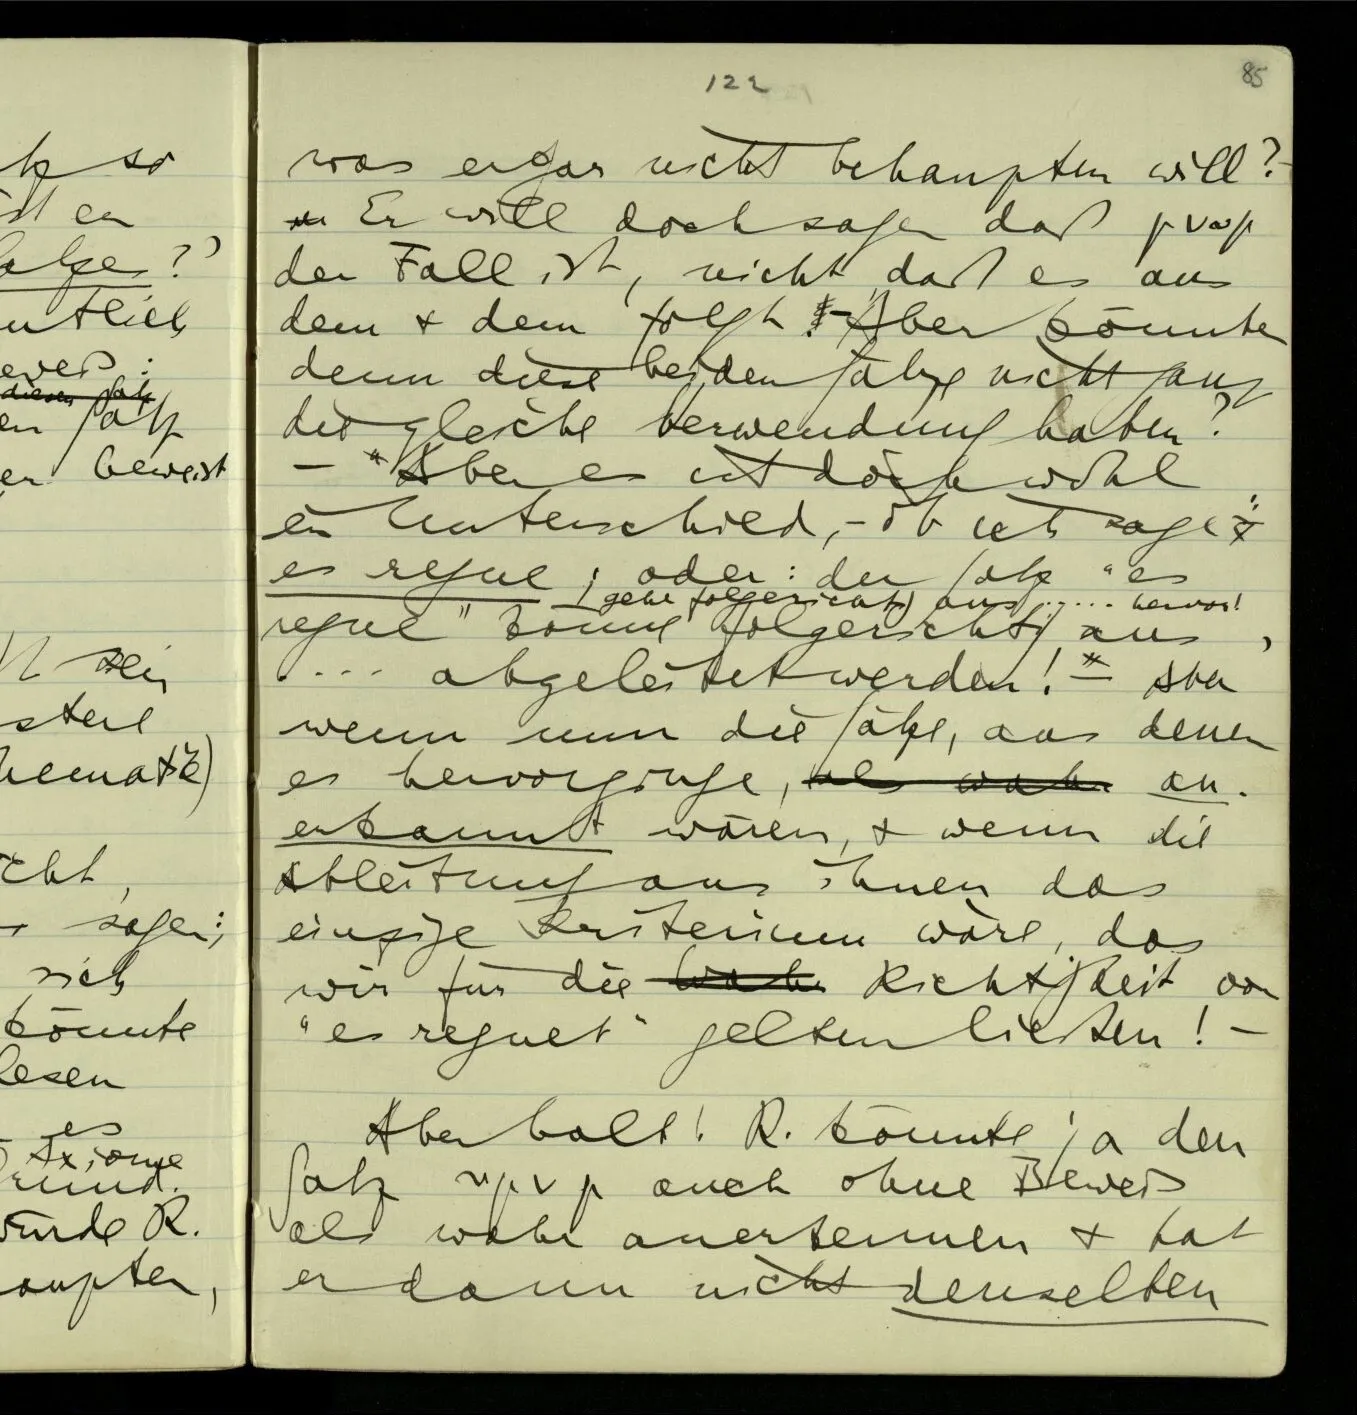 122
85
was er gar nicht behaupten will?
Er will doch sagen daß p v ~p
der Fall ist, nicht daß es aus
dem + dem folgt! – Aber könnten
denn diese beiden Sätze nicht ganz
die gleiche Verwendung haben?
– "Aber es ist doch wohl
ein Unterschied, – ob ich sage:
es regne; oder: der Satz "es
gehe folgerichtig aus ..... hervor!
regne" könne folgerichtig aus,
.... abgeleitet werden! – Aber
wenn nun die Sätze, aus denen
es hervorginge, als wahr an-
erkannt wären, + wenn die
Ableitung aus ihnen das
einzige Kriterium wäre, das
wir für die Wahr Richtigkeit von
"es regnet" gelten ließen! –
Aber halt! R. könnte ja den
Satz ~p v p auch ohne Beweis
als wahr anerkennen + hat
er dann nicht denselben
so
ist er
?"
:
diesen Satz
en Satz
er beweist
sein
stere
cht,
sagen;
sich
könnte
lesen
es
Axiome
Grund.
würde R.